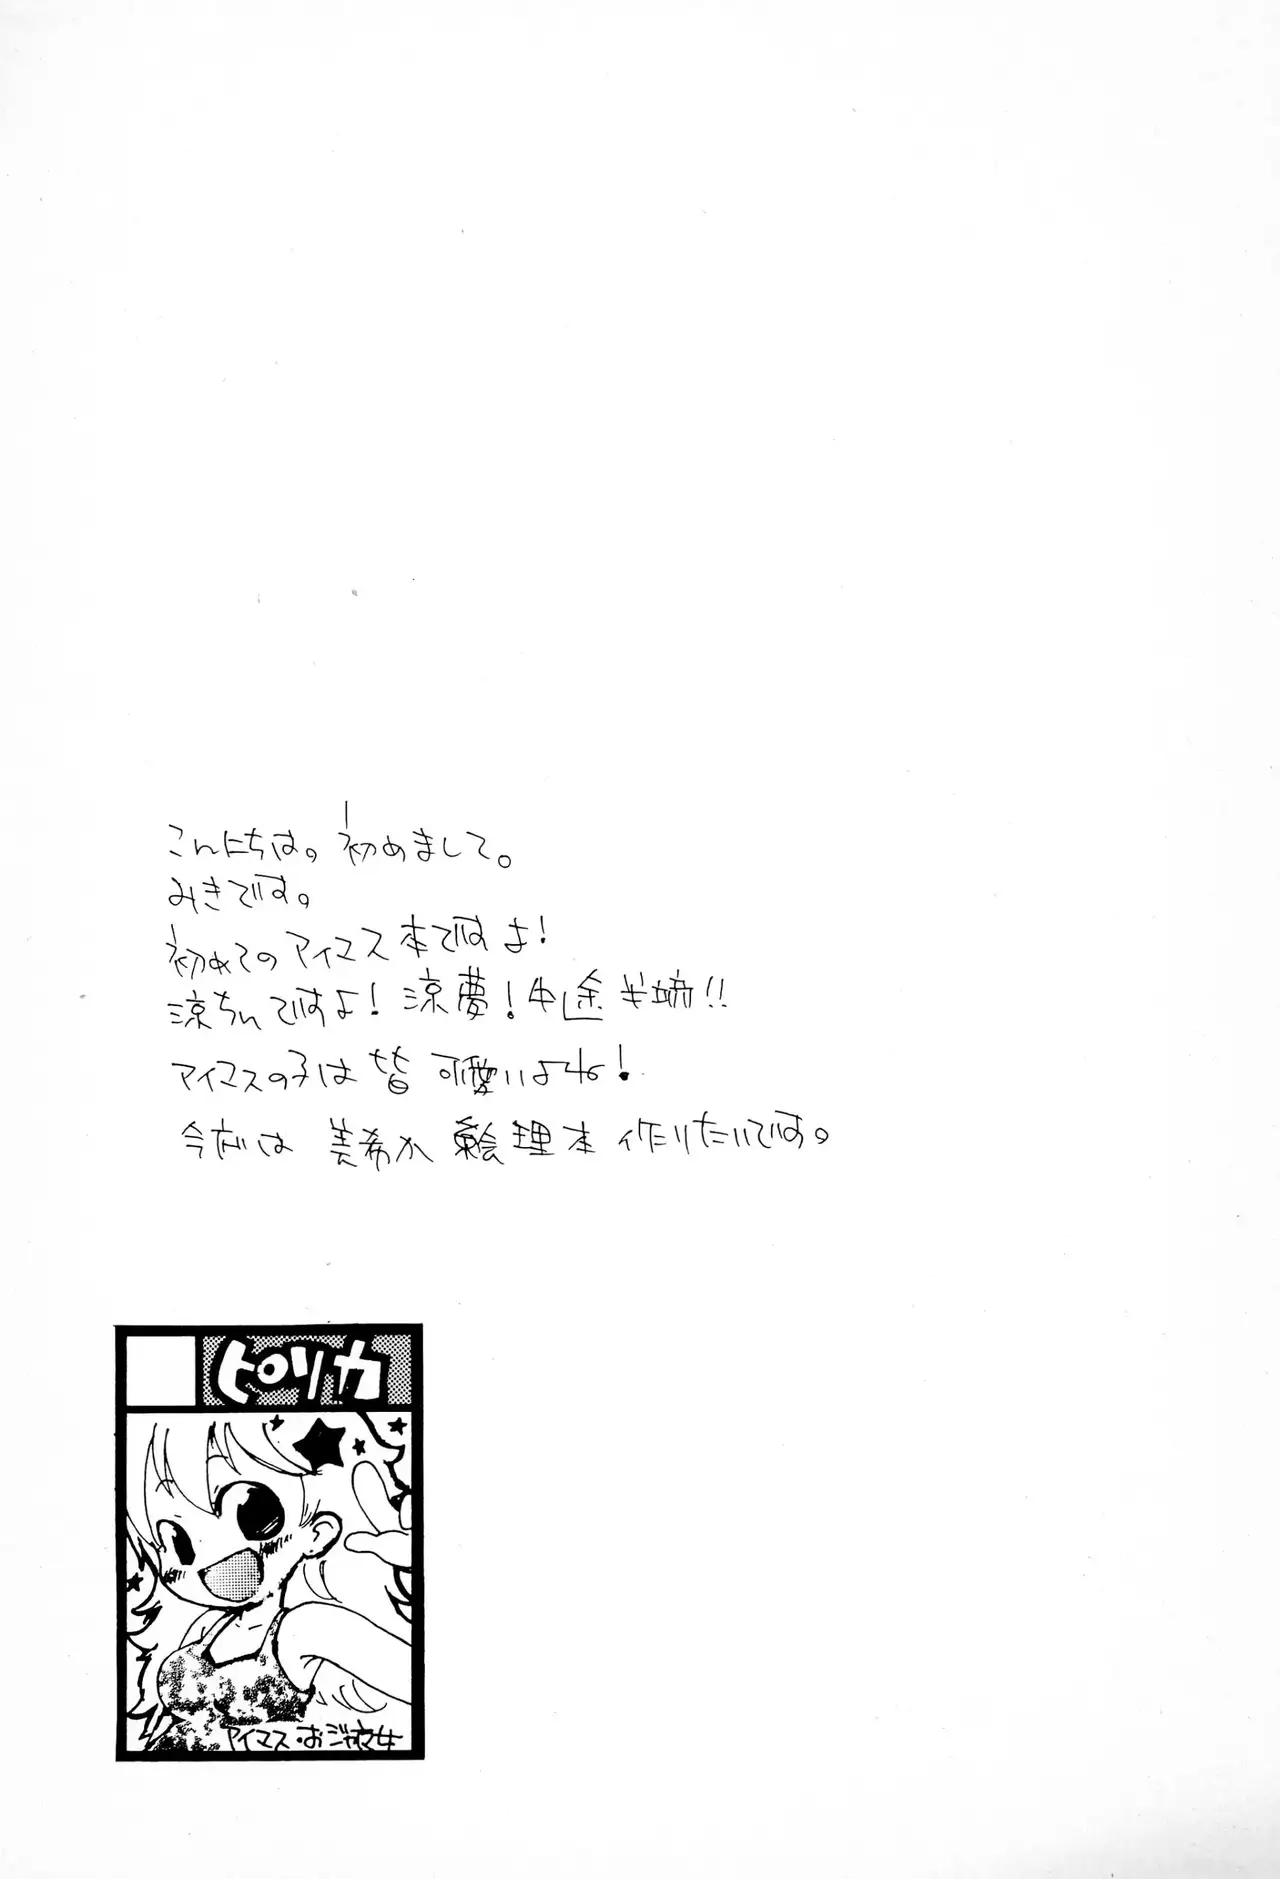 こんにちは。初めまして。
みきです。
初めてのアイマス本ですよ!
涼ちんですよ!涼夢!中途半端!!
アイマスの子は皆可愛いよね!
今度は美希か絵理本作りたいです。
ピロリカ
アイマス・おジャ魔女